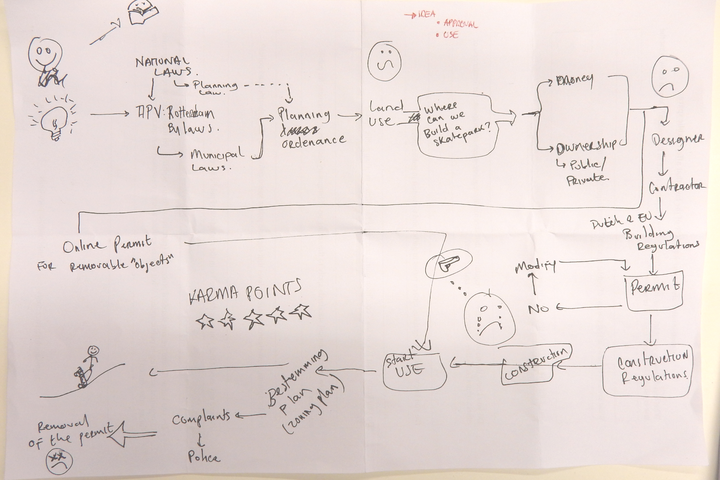 → IDEA
• APPROVAL
• USE
NATIONAL
LAWS.
Planning
Law.
APV: Rotterdam
By laws.
Municipal
Laws.
Planning
ordenance
Land
use
Where
can we
Build a
skatepark?
Money
Ownership
Public/
Private
Designer
Contractor
Dutch & EU
Building
Regulations
Online Permit
For Removable "objects"
Modify
No
Permit
KARMA POINTS
Construction
Regulations
Construction
Start
USE
Bestemming
Plan
(zoning plan)
Complaints
Police
Removal
of the permit